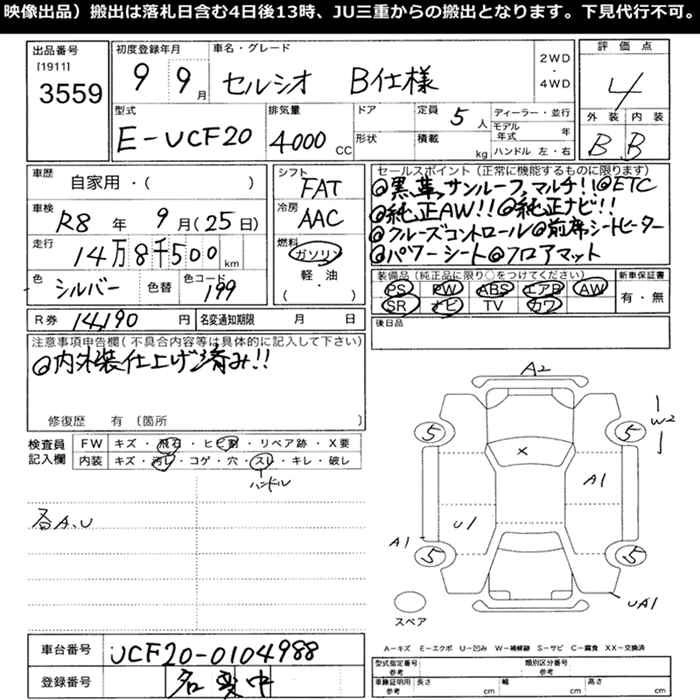 映像出品）搬出は落札日含む4日後13時、JU三重からの搬出となります。下見代行不可。
出品番号
[1911]
3559
初度登録年月
9 9月
車名・グレード
セルシオ B仕様
2WD
・
4WD
評価点
4
外装 内装
B B
型式
E-UCF20
排気量
4000 CC
ドア
形状
定員 5人
積載 kg
ディーラー・並行
モデル年式 年
ハンドル 左・右
車歴
自家用・( )
車検
R8年 9月(25日)
走行
14万8千500km
色
シルバー
色替
色コード
199
シフト
FAT
冷房
AAC
燃料
ガソリン
軽・油
( )
セールスポイント（正常に機能するものに限ります）
◎黒革,サンルーフ,マルチ!!◎ETC
◎純正AW!!◎純正ナビ!!
◎クルーズコントロール◎前席シートヒーター
◎パワーシート◎フロアマット
装備品（純正品に限り○をつけてください）
PS PW ABS エアB AW
SR ナビ TV カワ
新車保証書
有・無
後日品
R券 14,190円
名変通知期限 月 日
注意事項申告欄（不具合内容等は具体的に記入して下さい）
◎内外装仕上げ済み!!
修復歴 有〔箇所 〕
検査員
記入欄
FW キズ・飛石・ヒビ割・リペア跡・X要
内装 キズ・汚レ・コゲ・穴・スレ・キレ・破レ
ハンドル
各A,U
A2
5 5
W2
X
A1
U1
A1
5 5
UA1
スペア
A－キズ E－エクボ U－凹み W－補修跡 S－サビ C－腐食 XX－交換済
車台番号 UCF20-0104988
登録番号 名変中
型式指定番号
参考
類別区分番号
参考
車庫証明用
参考
長さ cm 幅 cm 高さ cm